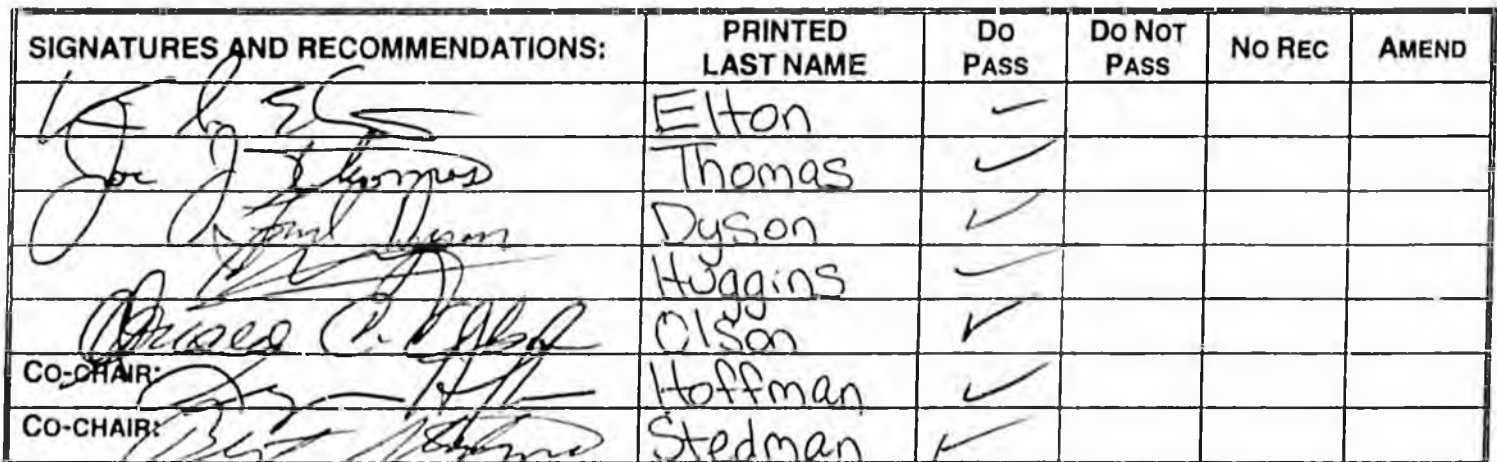 SIGNATURES AND RECOMMENDATIONS: PRINTED LAST NAME DO PASS DO NOT PASS NO REC AMEND
Elton ✓
Joe J Thomas Thomas ✓
Fred Dyson Dyson ✓
Huggins ✓
Olson ✓
CO-CHAIR: Hoffman ✓
CO-CHAIR: Bert Stedman Stedman ✓